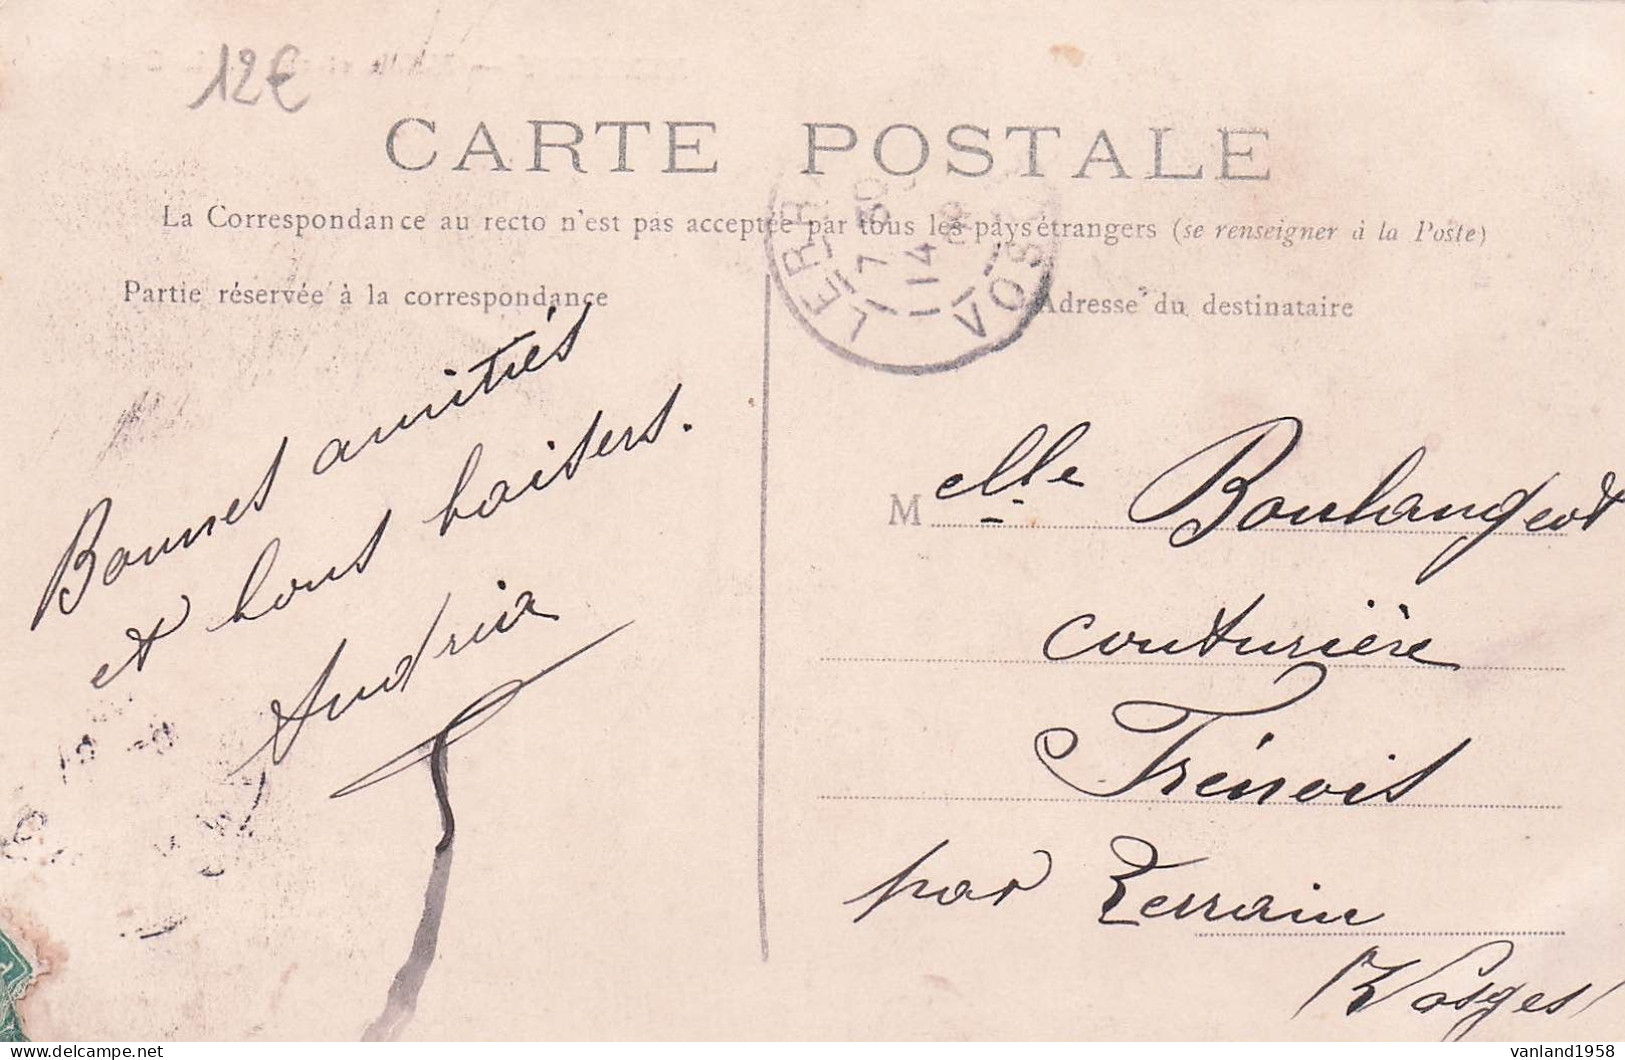 12€
CARTE POSTALE
La Correspondance au recto n'est pas acceptée par tous les pays étrangers (se renseigner à la Poste)
Partie réservée à la correspondance
Adresse du destinataire
7 30
14
09
VOSG
Bonnes amitiés
et bons baisers.
M elle Boulangeot
couturière
Frénois
par Lerrain
(Vosges)
vanland1958